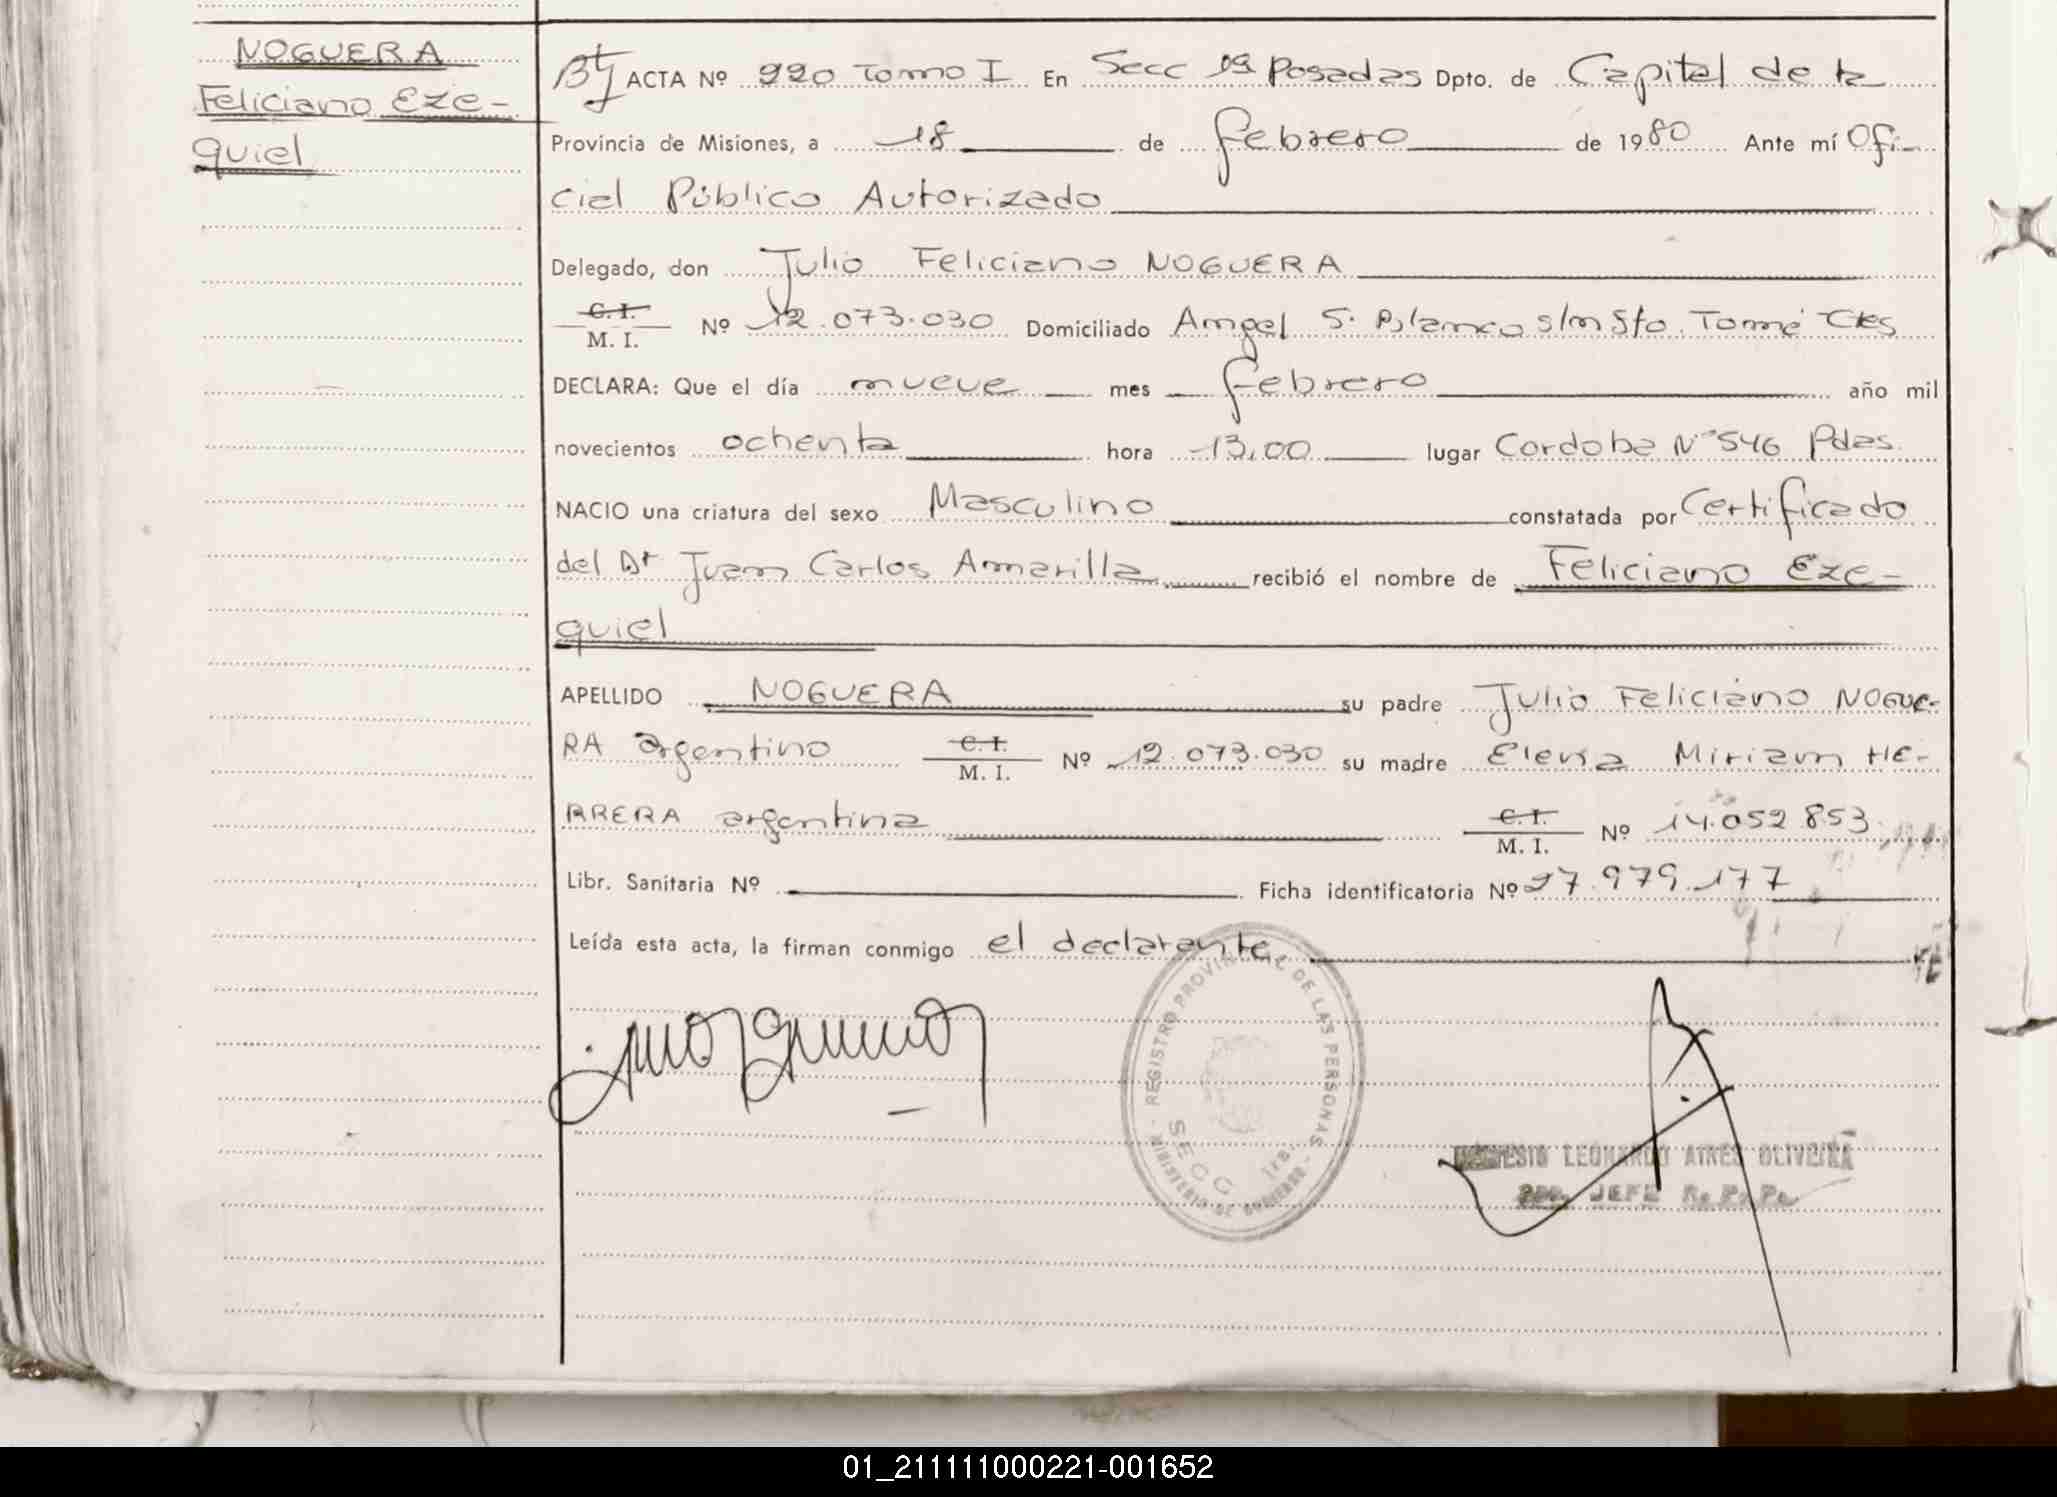 NOGUERA
Feliciano Eze-
quiel
ACTA Nº 220 Tomo I En Secc 1ª Posadas Dpto. de Capital de la
Provincia de Misiones, a 18 de febrero de 1980 Ante mí Ofi-
cial Público Autorizado
Delegado, don Julio Feliciano NOGUERA
C. I.
M. I. Nº 12.073.030 Domiciliado Angel S. Blanco s/n Sto. Tomé Ctes
DECLARA: Que el día nueve mes febrero año mil
novecientos ochenta hora 13,00 lugar Cordoba Nº 546 Pdas.
NACIO una criatura del sexo Masculino constatada por Certificado
del Dr Juan Carlos Amarilla recibió el nombre de Feliciano Eze-
quiel
APELLIDO NOGUERA su padre Julio Feliciano NOGUE-
RA argentino C. I. M. I. Nº 12.073.030 su madre Elena Miriam HE-
RRERA argentina C. I. M. I. Nº 14.052.853
Libr. Sanitaria Nº Ficha identificatoria Nº 27.979.177
Leída esta acta, la firman conmigo el declarante
REGISTRO PROVINCIAL DE LAS PERSONAS
MINISTERIO DE GOBIERNO
SECC 1ra.
LEONARDO AIRES OLIVEIRA
JEFE R. P. P.
01_211111000221-001652